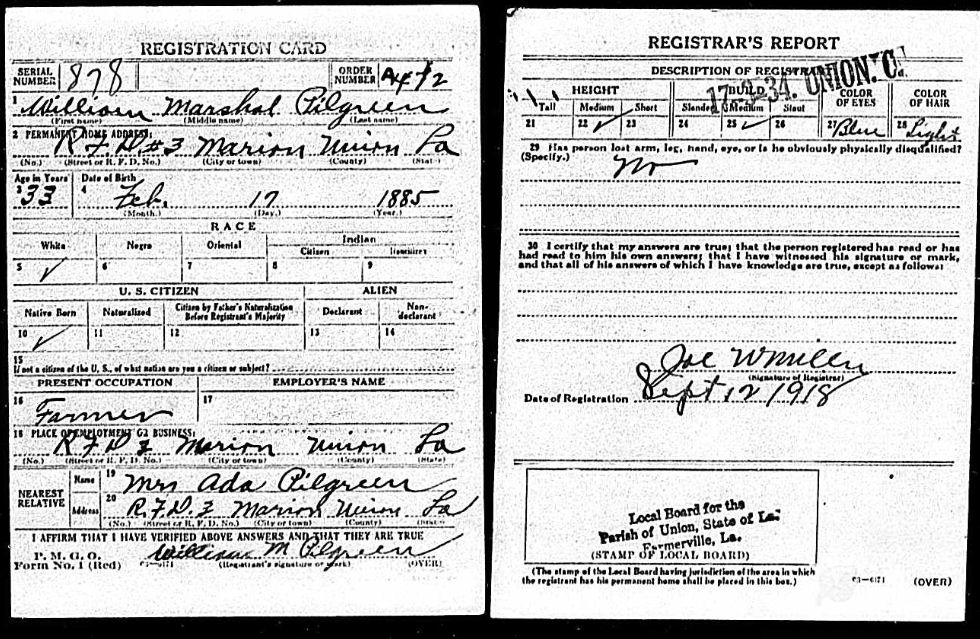 REGISTRATION CARD
SERIAL NUMBER 878 ORDER NUMBER
1 William Marshal Pilgreen
(First name) (Middle name) (Last name)
2 PERMANENT HOME ADDRESS:
R.F.D #3 Marion Union La
(No.) (Street or R. F. D. No.) (City or town) (County) (State)
Age in Years Date of Birth
3 33 4 Feb. 17 1885
(Month.) (Day.) (Year.)
RACE
White Negro Oriental Indian
Citizen Noncitizen
5 ✓ 6 7 8 9
U. S. CITIZEN ALIEN
Native Born Naturalized Citizen by Father's Naturalization Before Registrant's Majority Declarant Non-declarant
10 ✓ 11 12 13 14
15
If not a citizen of the U. S., of what nation are you a citizen or subject?
PRESENT OCCUPATION EMPLOYER'S NAME
16 Farmer 17
18 PLACE OF EMPLOYMENT OR BUSINESS:
R F D 3 Marion Union La
(No.) (Street or R. F. D. No.) (City or town) (County) (State)
NEAREST RELATIVE Name 19 Mrs Ada Pilgreen
Address 20 R.F.D. 3 Marion Union La
(No.) (Street or R. F. D. No.) (City or town) (County) (State)
I AFFIRM THAT I HAVE VERIFIED ABOVE ANSWERS AND THAT THEY ARE TRUE
P. M. G. O.
Form No. 1 (Red) William M Pilgreen
(Registrant's signature or mark) (OVER)
REGISTRAR'S REPORT
DESCRIPTION OF REGISTRANT
HEIGHT BUILD COLOR OF EYES COLOR OF HAIR
Tall Medium Short Slender Medium Stout
21 22 ✓ 23 24 25 ✓ 26 27 Blue 28 Light
29 Has person lost arm, leg, hand, eye, or is he obviously physically disqualified?
(Specify.) No
30 I certify that my answers are true; that the person registered has read or has
had read to him his own answers; that I have witnessed his signature or mark,
and that all of his answers of which I have knowledge are true, except as follows:
(Signature of Registrar)
Date of Registration Sept 12 1918
Local Board for the
Parish of Union, State of La.
Farmerville, La.
(STAMP OF LOCAL BOARD)
(The stamp of the Local Board having jurisdiction of the area in which
the registrant has his permanent home shall be placed in this box.)
03—6171 (OVER)